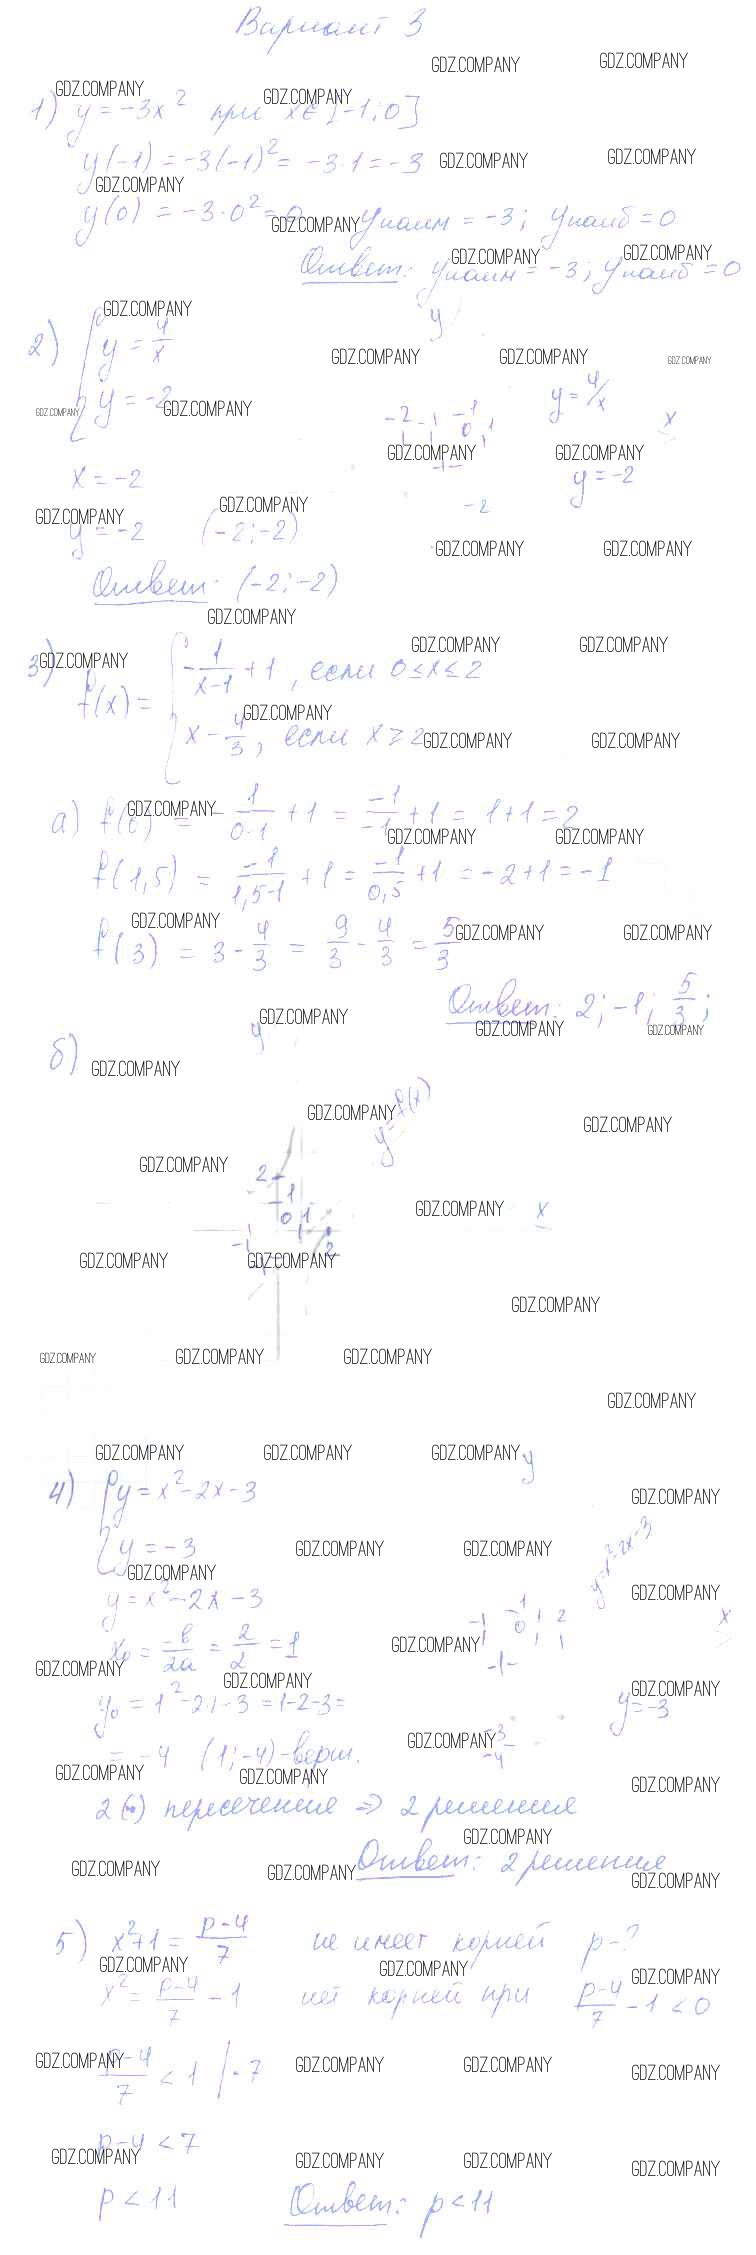 Вариант 3
1) y = -3x² при x∈[-1; 0]
y(-1) = -3(-1)² = -3·1 = -3
y(0) = -3·0² = 0 yнаим = -3; yнаиб = 0
Ответ: yнаим = -3; yнаиб = 0
2) { y = 4/x
y = -2
x = -2
y = -2 (-2; -2)
y
-2 -1 -1 0 1
y = 4/x
x
y = -2
-2
Ответ: (-2; -2)
3) f(x) = { -1/(x-1) + 1, если 0 ≤ x ≤ 2
x - 4/3, если x ≥ 2
а) f(0) = -1/(0-1) + 1 = -1/-1 + 1 = 1+1 = 2
f(1,5) = -1/(1,5-1) + 1 = -1/0,5 + 1 = -2+1 = -1
f(3) = 3 - 4/3 = 9/3 - 4/3 = 5/3
Ответ: 2; -1; 5/3;
б)
y
y = f(x)
2
1
0 1
x
-1 2
-1
4) { y = x² - 2x - 3
y = -3
y = x² - 2x - 3
x₀ = -b/2a = 2/2 = 1
y₀ = 1² - 2·1 - 3 = 1-2-3 =
= -4 (1; -4) - верш.
y
y = x² - 2x - 3
-1 1 0 1 2
x
-1
y = -3
-3
-4
2(·) пересечения ⇒ 2 решения
Ответ: 2 решения
5) x² + 1 = (p-4)/7 не имеет корней p - ?
x² = (p-4)/7 - 1 нет корней при (p-4)/7 - 1 < 0
(p-4)/7 < 1 | · 7
p - 4 < 7
p < 11 Ответ: p < 11
GDZ.COMPANY